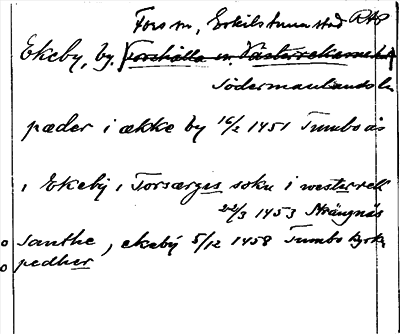 Fors sn, Eskilstuna stad RAÄ
Ekeby, by, Torshälla sn. Västerrekarne hd
Södermanlands län
pæder i ække by 16/2 1451 Tumbo ås
i Ekeby i Forsærgis sokn i westrrek
22/3 1453 Strängnäs
o Santhe, ekeby 5/12 1458 Tumbo kyrka
o pedher